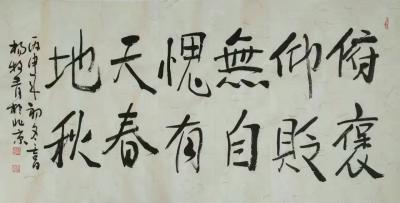 俯仰無愧天地
褒貶自有春秋
丙申年初冬
楊牧青於北京